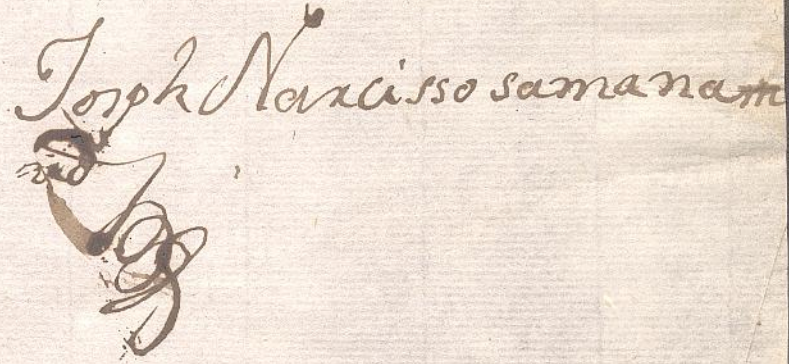 Joseph Narcisso samanam